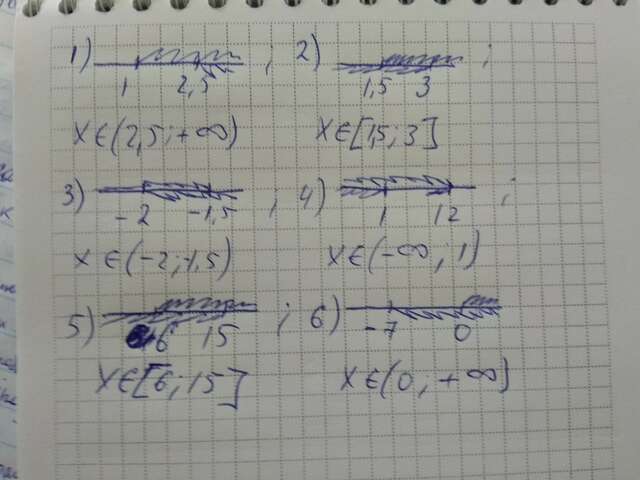 1) ; 2) ;
1 2,5 1,5 3
x∈(2,5;+∞) x∈[1,5;3]
3) ; 4) ;
-2 -1,5 1 12
x∈(-2;-1,5) x∈(-∞;1)
5) ; 6)
6 15 -7 0
x∈[6;15] x∈(0;+∞)